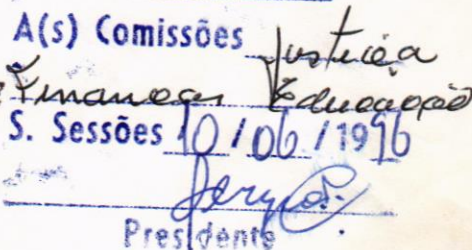 A(s) Comissões Justiça
Finanças Educação
S. Sessões 10/06/1996
Presidente